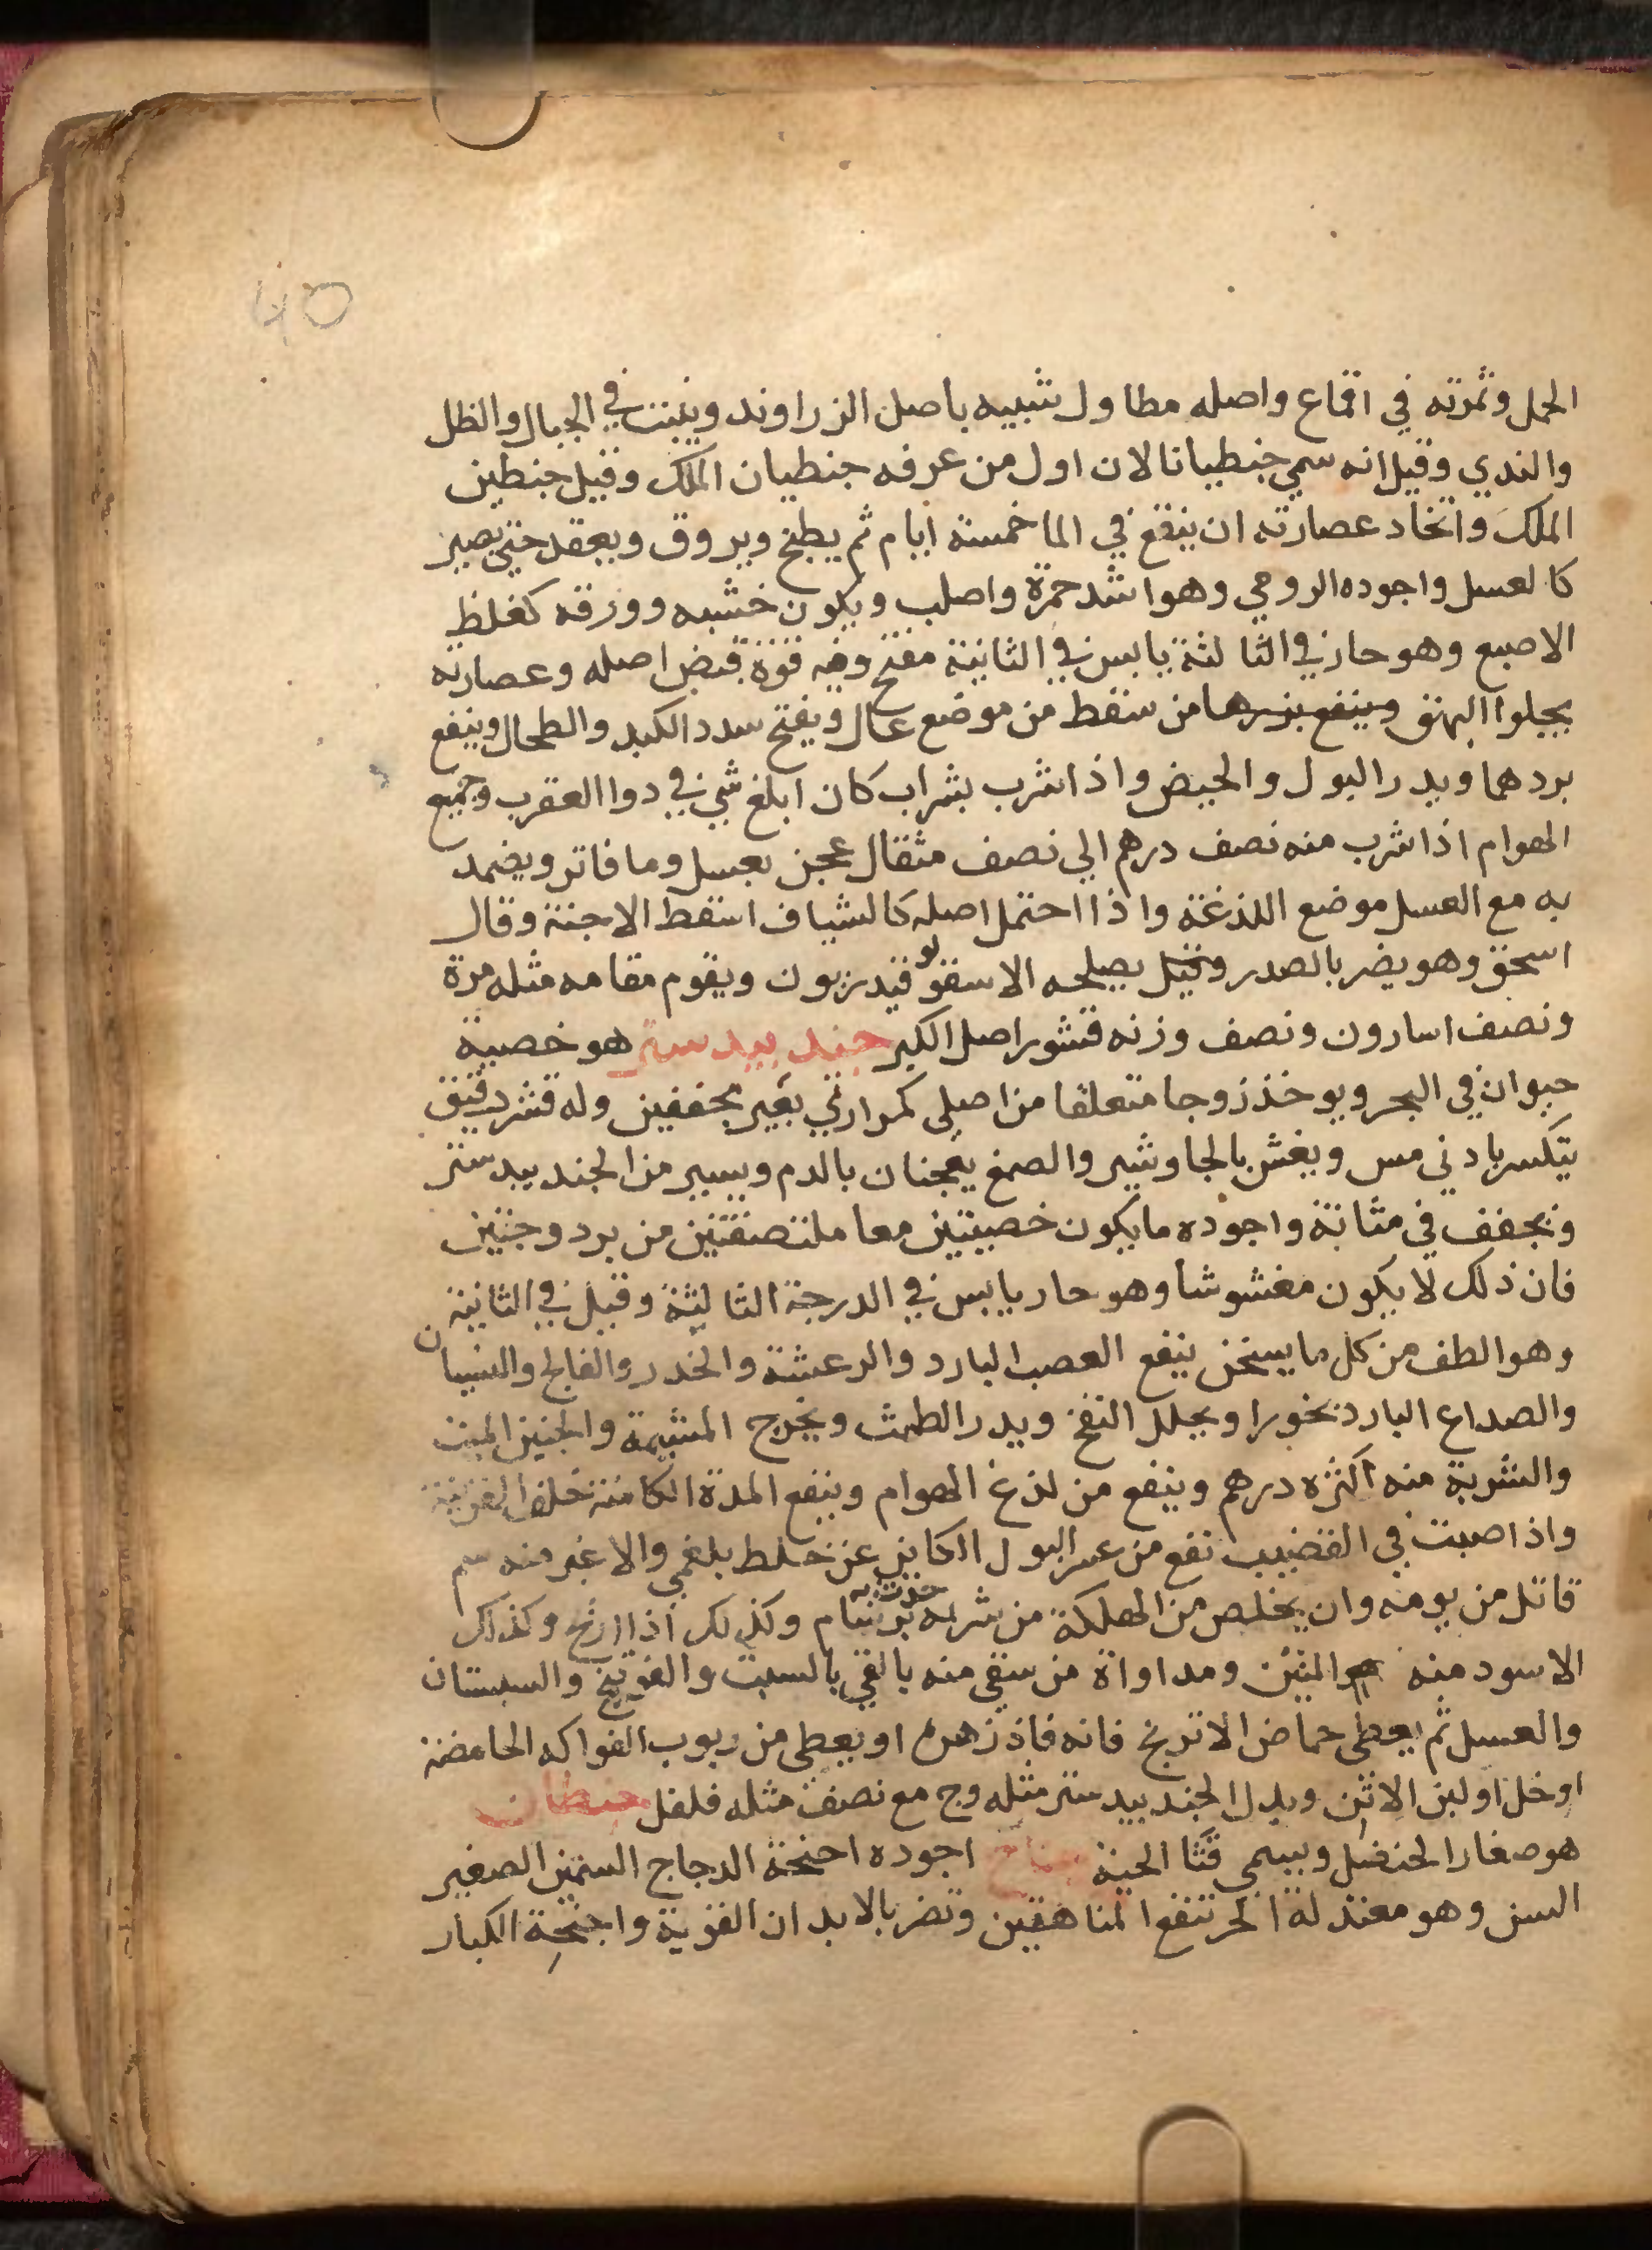 40
الحمل وثمرته في اقماع واصله مطاول شبيه باصل الزراوند وينبت في الجبال والظل
والندي وقيل انه سمي جنطيانا لان اول من عرفه جنطيان الملك وقيل جنطين
الملك واتخاد عصارته ان ينقع في الما خمسة ايام ثم يطبخ ويروق ويعقد حتي يصير
كالعسل واجوده الرومي وهو اشد حمرة واصلب ويكون خشبه وورقه كغلظ
الاصبع وهو حار في الثالثة يابس في الثانية مفتح وفيه قوة قبض اصله وعصارته
يجلوا البهق وينفع بزرها من سقط من موضع عال ويفتح سدد الكبد والطحال وينفع
بردهما ويدر البول والحيض واذا شرب بشراب كان ابلغ شي في دوا العقرب وجميع
الهوام اذا شرب منه نصف درهم الي نصف مثقال عجن بعسل وما فاتر ويضمد
به مع العسل موضع اللذغة واذا احتمل اصله كالشياف اسقط الاجنة وقال
اسحق وهو يضر بالصدر وقيل يصلحه الاسقولوقندريون ويقوم مقامه مثله مرة
ونصف اسارون ونصف وزنه قشور اصل الكبر جند بيدستر هو خصية
حيوان في البحر ويوخذ زوجا متعلقا من اصلي كمرارتي بقير مجففين وله قشر دقيق
يتكسر بادني مس ويغش بالجاوشير والصمغ يعجنان بالدم ويسير من الجند بيدستر
ونجفف في مثانة واجوده ما يكون خصيتين معا ملتصقتين من برد وجتين
فان ذلك لا يكون مغشوشا وهو حار يابس في الدرجة الثالثة وقيل في الثانية
وهو الطف من كل ما يسخن ينفع العصب البارد والرعشة والخدر والفالج والنسيان
والصداع البارد بخورا ويحلل النفخ ويدر الطمث ويخرج المشيمة والجنين الميت
والشربة منه اكثره درهم وينفع من لذغ الهوام وينفع المدة الكامنة خلف القرنية
واذا صبت في القضيب نفع من عسر البول الكاين عن خلط بلغمي والاغبر منه سم
قاتل من يومه وان يخلص من الهلكة من شربه حدث به برسام وكذلك اذا ازنخ وكذلك
الاسود منه المنتن ومداواة من سقي منه بالقي بالسبت والفوتنج والسبستان
والعسل ثم يعطي حماض الاترنج فانه فاذ زهره او يعطي من ربوب الفواكه الحامضة
او خل او لبن الاتن وبدل الجند بيدستر مثله وج مع نصف مثله فلفل
هو صغار الحنضل ويسمي قثا الحية جناح اجوده اجنحة الدجاج السمين الصغير
السن وهو معتدلة الحر تنفع الناهقين وتضر بالابدان القوية واجنحة الكبار